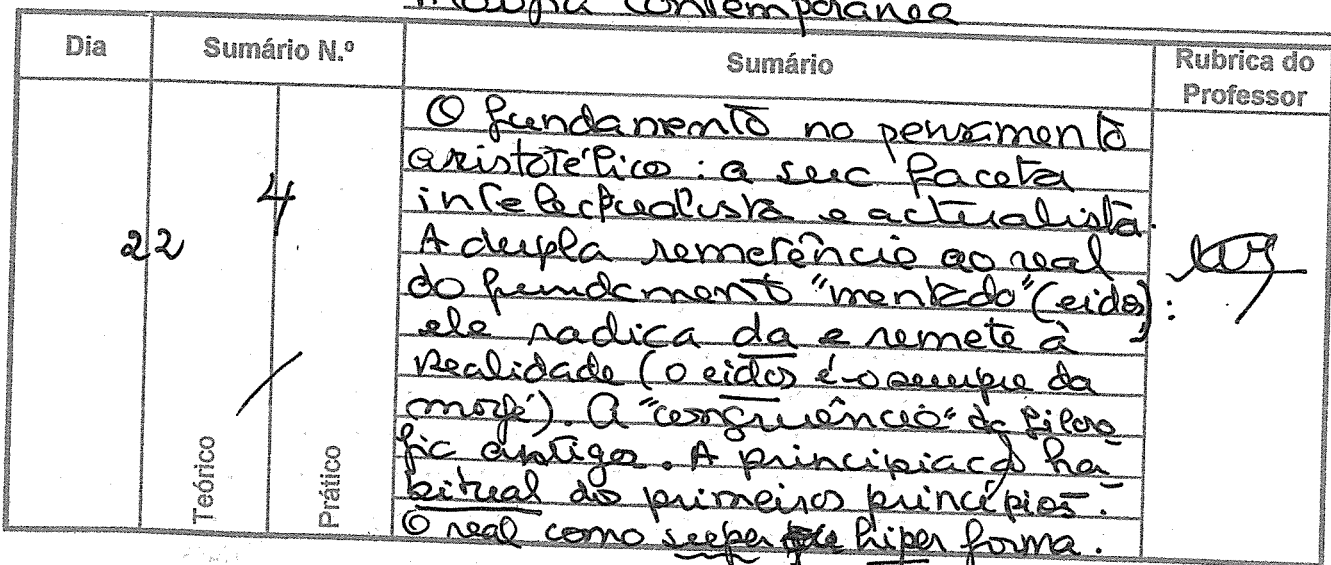 Filosofia Contemporânea
Dia
Sumário N.º
Sumário
Rubrica do
Professor
22
4
Teórico
Prático
O fundamento no pensamento
aristotélico: a sua faceta
intelectualista e actualista.
A dupla remetência ao real
do fundamento "mentado" (eidos):
ele radica da e remete à
realidade (o eidos é-o sempre da
morfé). A "congruência" da filoso
fia antiga. A principiação ha-
bitual dos primeiros princípios.
O real como super hiper forma.